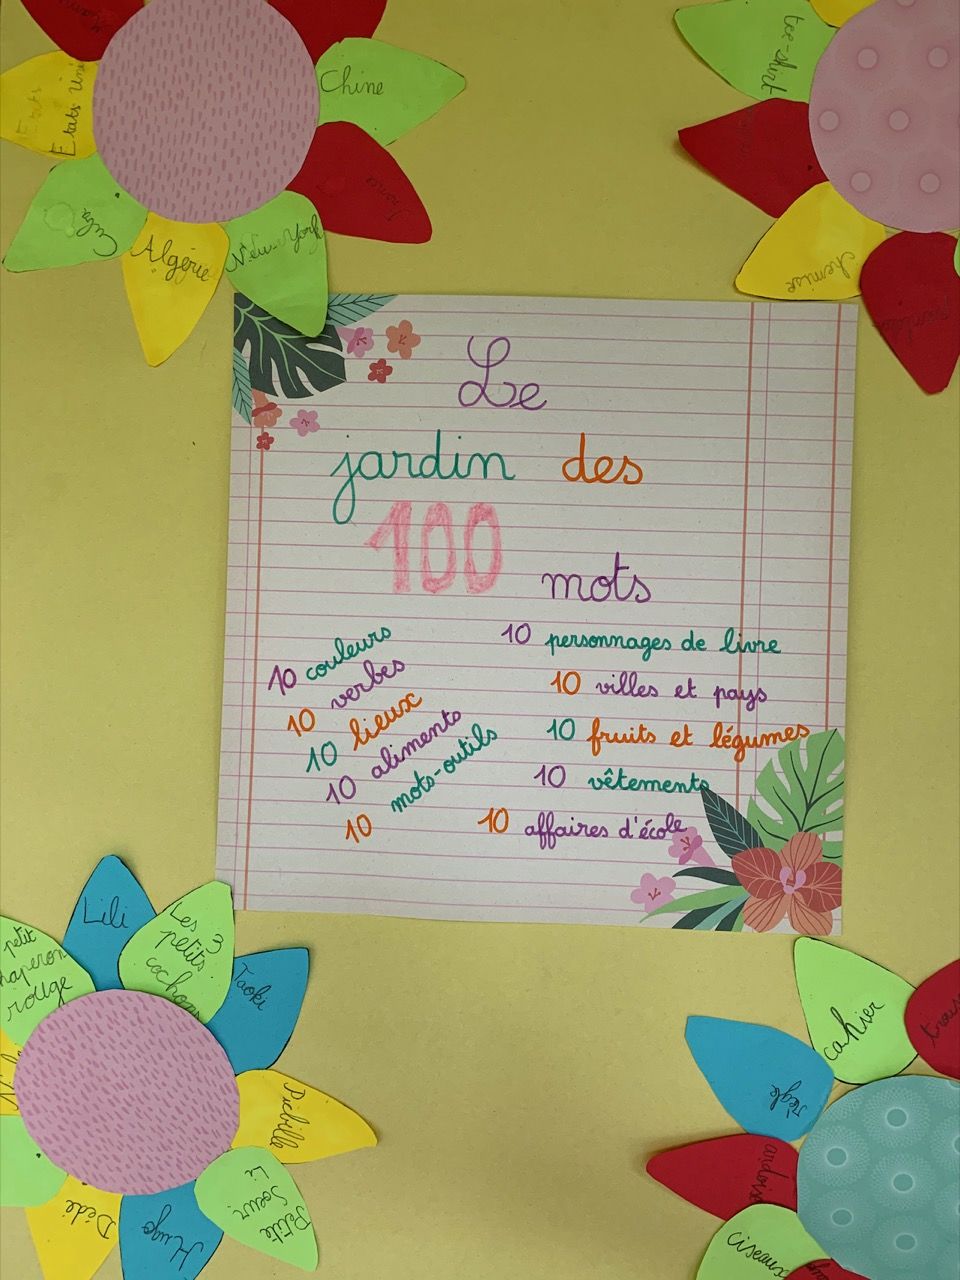 Etats Unis
Chine
Cuba
Algérie
New-York
tee-shirt
chemise
Le
jardin des
100
mots
10 couleurs
10 verbes
10 lieux
10 aliments
10 mots-outils
10 personnages de livre
10 villes et pays
10 fruits et légumes
10 vêtements
10 affaires d'école
petit
chaperon
rouge
Lili
Les 3
petits
cochons
Taoki
Petite
Soeur
Li
Hugo
Dédé
cahier
règle
ardoise
ciseaux